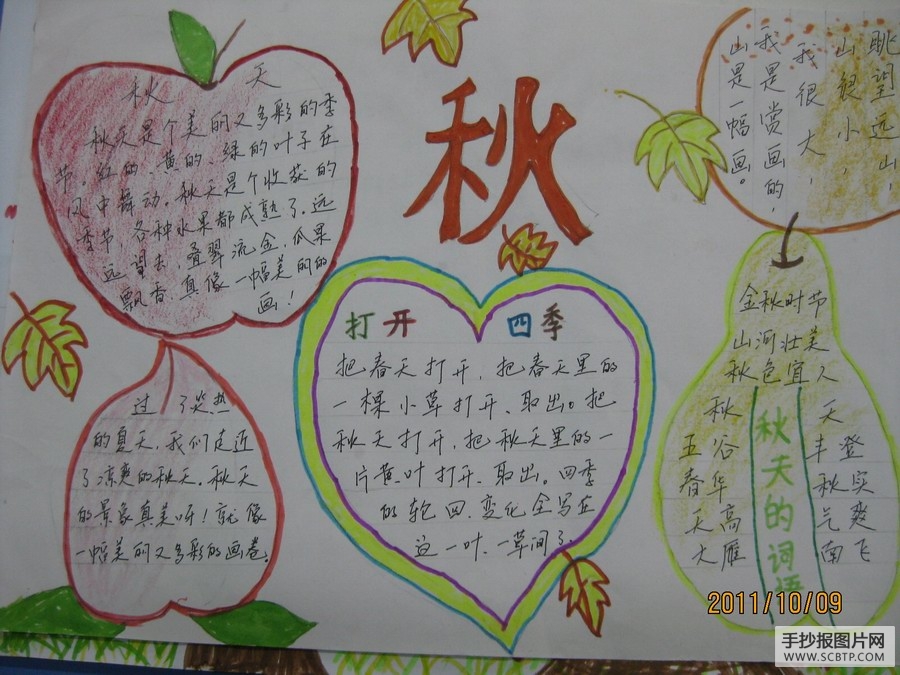 秋 天
秋天是个美的又多彩的季
节。红的、黄的、绿的叶子在
风中舞动。秋天是个收获的
季节,各种水果都成熟了。远
远望去,叠翠流金,瓜果
飘香,真像一幅美丽的
画!
秋
眺望远山,
山很小,
我很大,
我是赏画的,
山是一幅画。
打开 四季
把春天打开,把春天里的
一棵小草打开、取出。把
秋天打开,把秋天里的一
片黄叶打开、取出。四季
的轮回、变化全写在
这一叶、一草间了。
过了炎热
的夏天,我们走近
了凉爽的秋天。秋天
的景象真美呀!就像
一幅美丽又多彩的画卷。
金秋时节
山河壮美
秋色宜人
秋天的词语
秋 天
五谷丰澄
春华秋实
天高气爽
大雁南飞
2011/10/09
手抄报图片网
WWW.SCBTP.COM